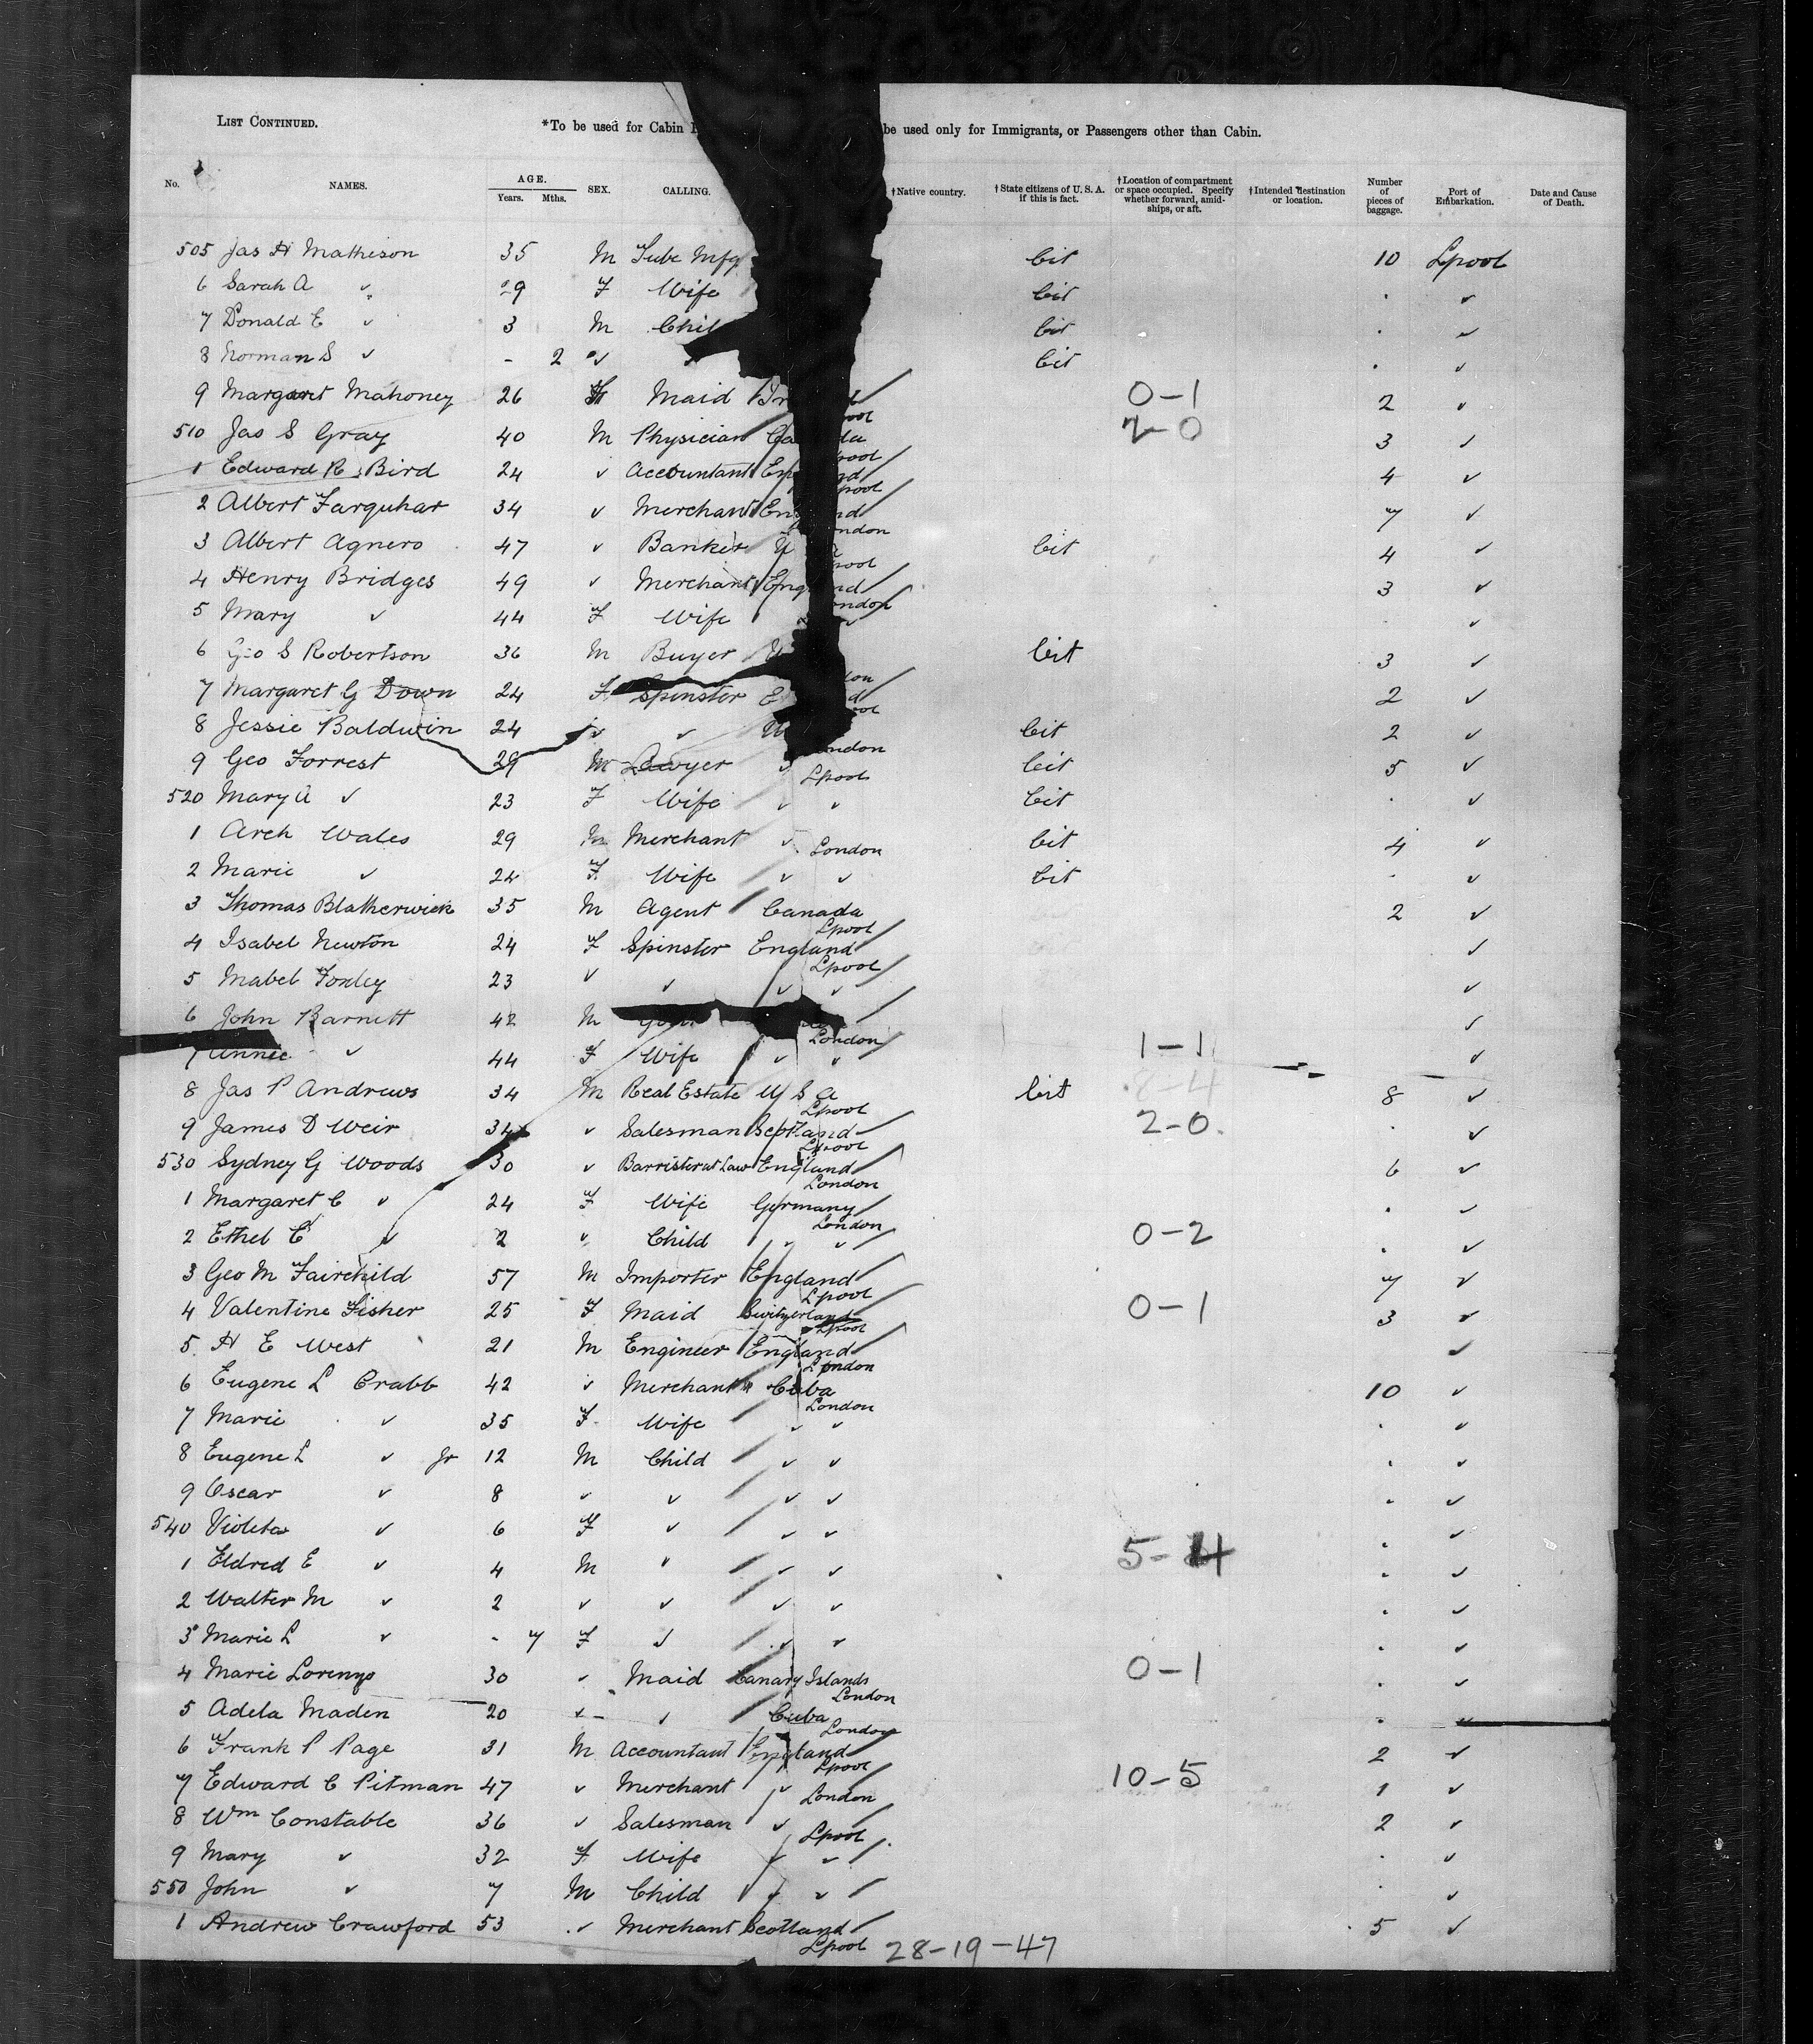 LIST CONTINUED.
*To be used for Cabin be used only for Immigrants, or Passengers other than Cabin.
No. NAMES. AGE. Years. Mths. SEX. CALLING. †Native country. †State citizens of U. S. A. if this is fact. †Location of compartment or space occupied. Specify whether forward, amidships, or aft. †Intended destination or location. Number of pieces of baggage. Port of Embarkation. Date and Cause of Death.
505 Jas H Mathieson 35 M Tube Mfg Cit 10 Lpool
6 Sarah A ✓ 29 F Wife Cit . ✓
7 Donald E ✓ 3 M Cit . ✓
8 Norman S ✓ - 2 ✓ Cit . ✓
9 Margaret Mahoney 26 Maid 0-1 2 ✓
510 Jas S Gray 40 M Physician 2-0 3 ✓
1 Edward R Bird 24 ✓ Accountant 4 ✓
2 Albert Farquhar 34 ✓ Merchant 7 ✓
3 Albert Agnero 47 ✓ Banker Cit 4 ✓
4 Henry Bridges 49 ✓ Merchant 3 ✓
5 Mary ✓ 44 F Wife ✓ . ✓
6 Geo S Robertson 36 M Buyer Cit 3 ✓
7 Margaret G Down 24 F Spinster 2 ✓
8 Jessie Baldwin 24 ✓ ✓ Cit 2 ✓
9 Geo Forrest 29 M Lawyer ✓ Lpool Cit 5 ✓
520 Mary A ✓ 23 F Wife ✓ ✓ Cit . ✓
1 Arch Wales 29 M Merchant ✓ London Cit 4 ✓
2 Marie ✓ 24 F Wife ✓ ✓ Cit . ✓
3 Thomas Blatherwick 35 M Agent Canada Lpool 2 ✓
4 Isabel Newton 24 F Spinster England Lpool ✓
5 Mabel Foxley 23 ✓ ✓ ✓ ✓ ✓
6 John Barnett 42 M London ✓
7 Annie ✓ 44 F Wife ✓ ✓ 1-1 ✓
8 Jas P Andrews 34 M Real Estate U S A Lpool Cit 8-4 8 ✓
9 James D Weir 34 ✓ Salesman Scotland Lpool 2-0 . ✓
530 Sydney G Woods 30 ✓ Barrister at Law England London 6 ✓
1 Margaret C ✓ 24 F Wife Germany London . ✓
2 Ethel C ✓ 2 ✓ Child ✓ ✓ 0-2 . ✓
3 Geo M Fairchild 57 M Importer England Lpool 7 ✓
4 Valentine Fisher 25 F Maid Switzerland Lpool 0-1 3 ✓
5 H E West 21 M Engineer England London ✓
6 Eugene L Crabb 42 ✓ Merchant Cuba London 10 ✓
7 Marie ✓ 35 F Wife ✓ ✓ . ✓
8 Eugene L ✓ Jr 12 M Child ✓ ✓ . ✓
9 Oscar ✓ 8 ✓ ✓ ✓ ✓ . ✓
540 Violeta ✓ 6 F ✓ ✓ ✓ . ✓
1 Eldred E ✓ 4 M ✓ ✓ ✓ 5-4 . ✓
2 Walter M ✓ 2 ✓ ✓ ✓ ✓ . ✓
3 Marie L ✓ - 7 F ✓ ✓ ✓ . ✓
4 Marie Lorenzo 30 ✓ Maid Canary Islands London 0-1 . ✓
5 Adela Maden 20 ✓ ✓ Cuba London . ✓
6 Frank P Page 31 M Accountant England Lpool 2 ✓
7 Edward C Pitman 47 ✓ Merchant ✓ London 10-5 1 ✓
8 Wm Constable 36 ✓ Salesman ✓ Lpool 2 ✓
9 Mary ✓ 32 F Wife ✓ ✓ . ✓
550 John ✓ 7 M Child ✓ ✓ . ✓
1 Andrew Crawford 53 ✓ Merchant Scotland Lpool 5 ✓
28-19-47